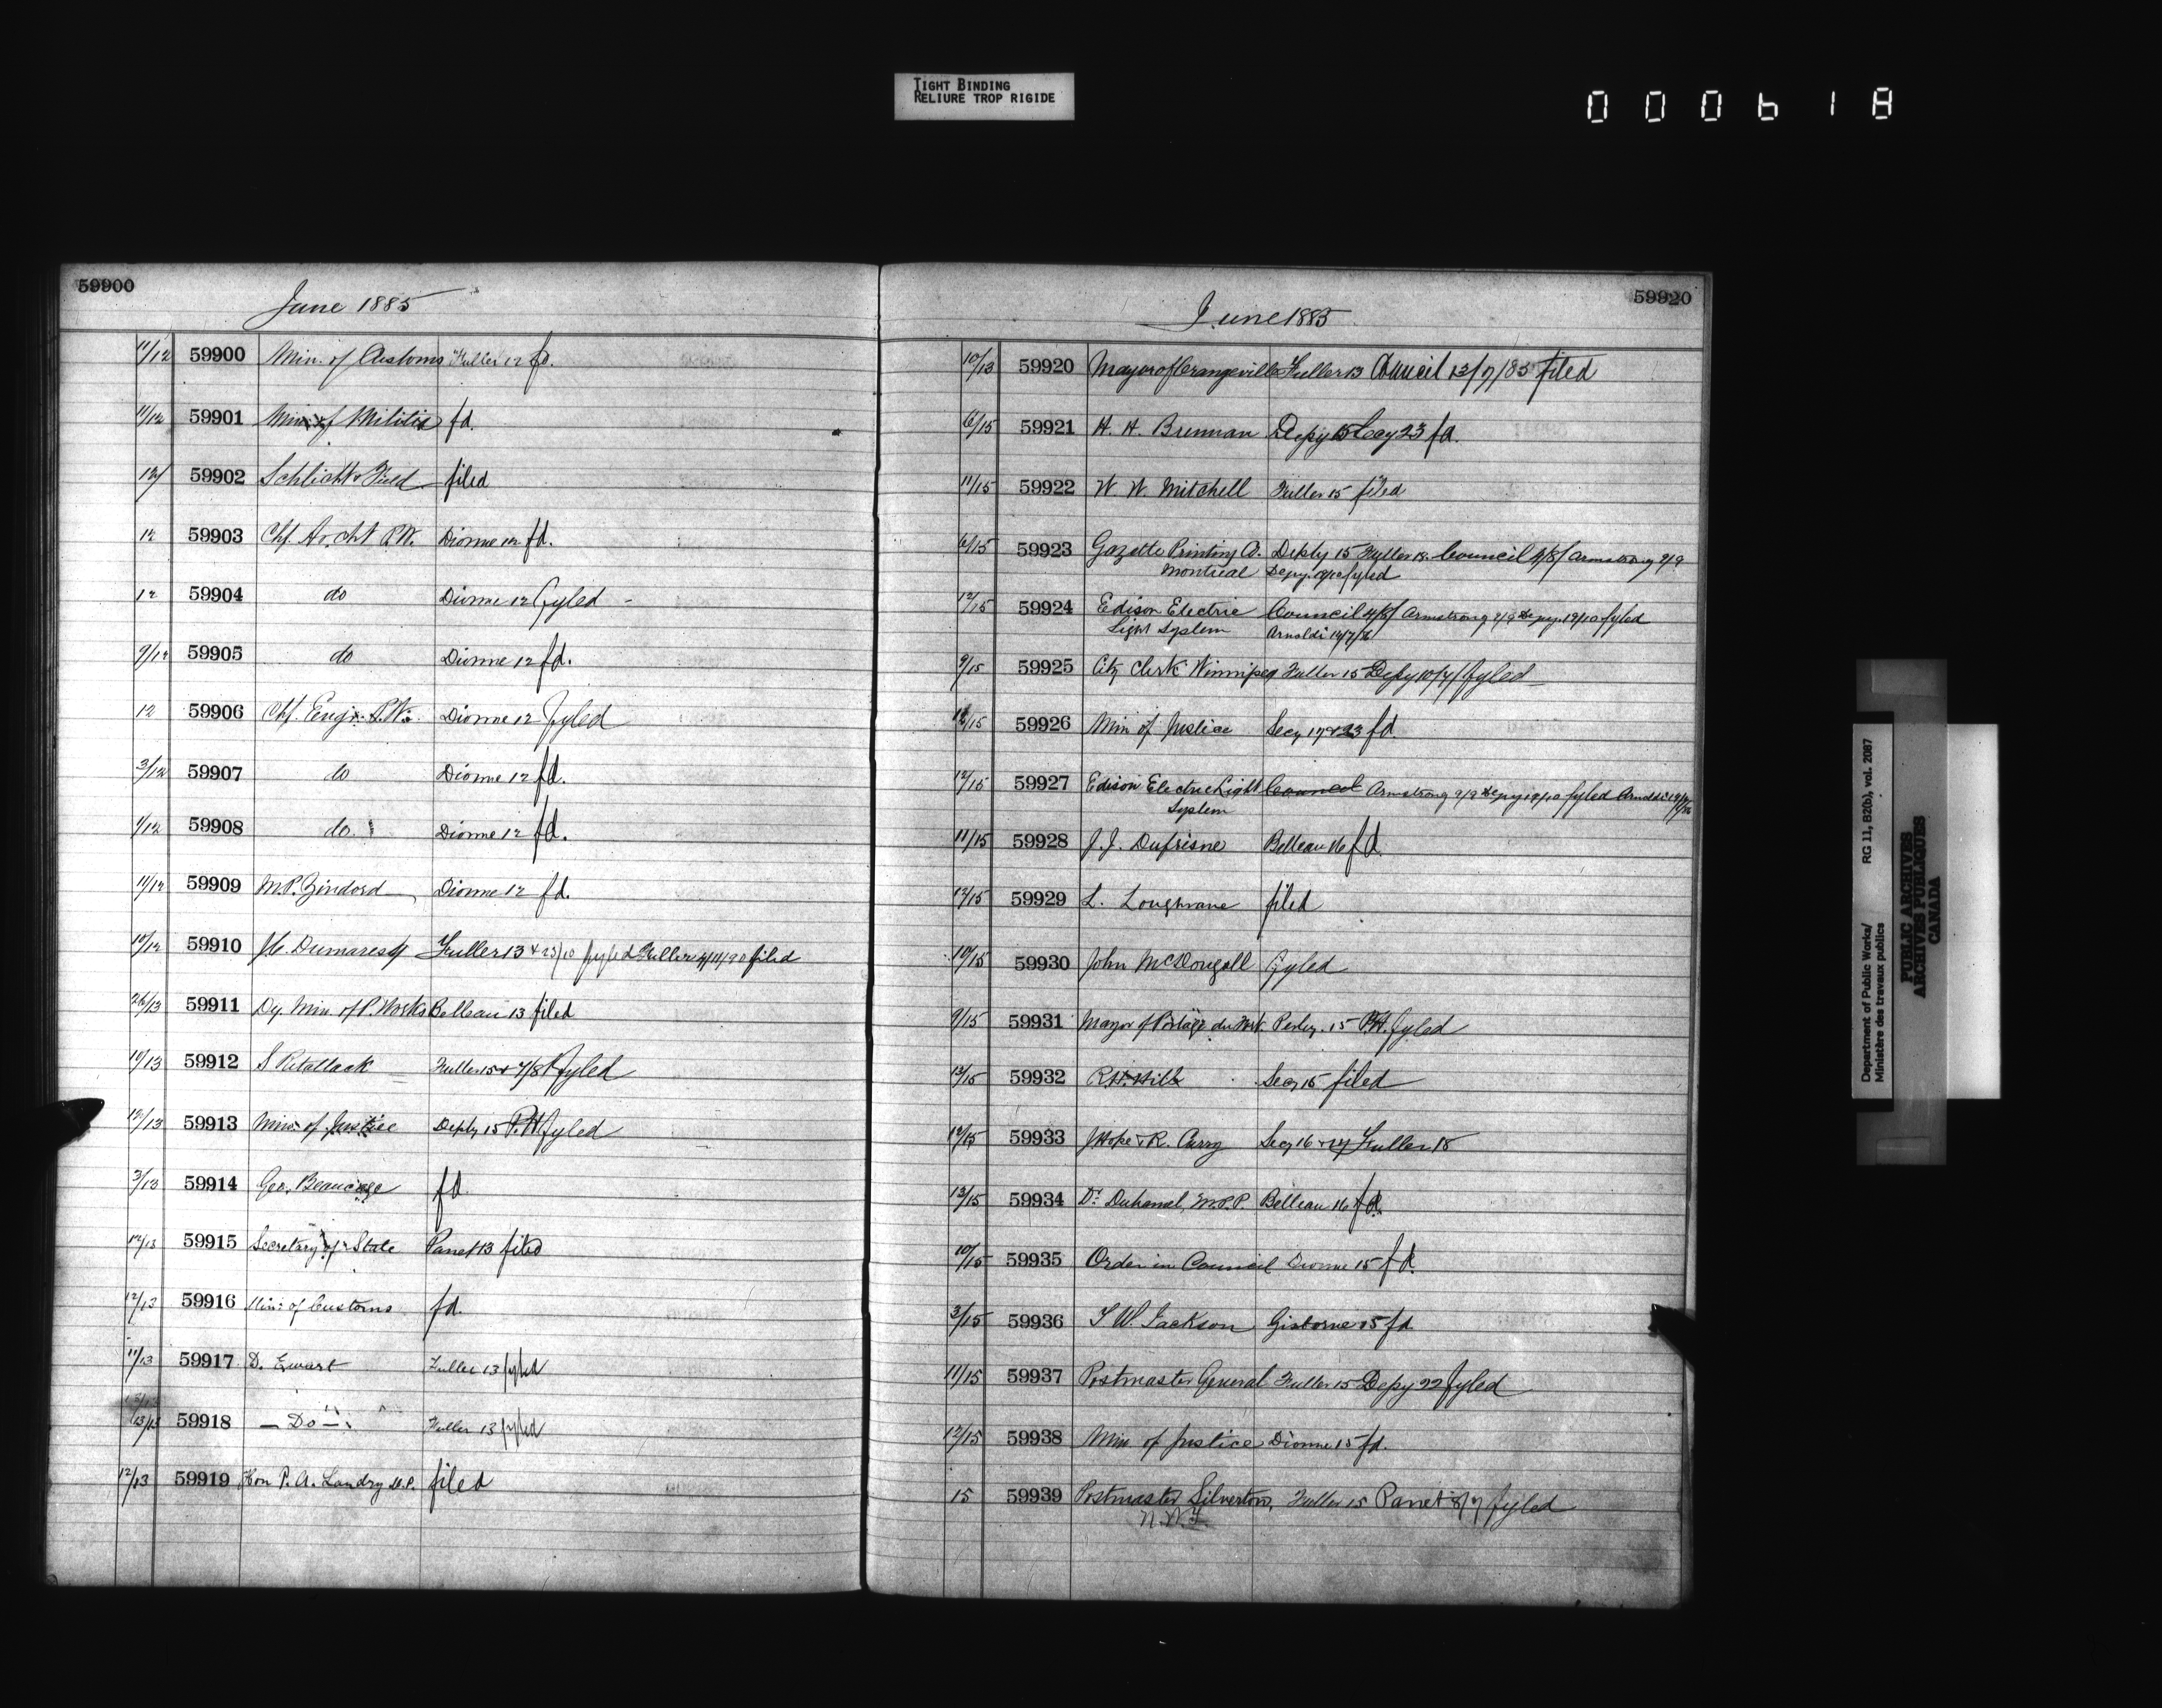 TIGHT BINDING
RELIURE TROP RIGIDE
000618
59900
June 1885
11/12 59900 Min. of Customs Fuller 12 fd.
11/12 59901 Min. of Militia fd.
12/ 59902 Schlicht & Field filed
12 59903 Chf. Archt P.W. Dionne 12 fd.
12 59904 do Dionne 12 fyled
9/12 59905 do Dionne 12 fd.
12 59906 Chf. Engr. P.W. Dionne 12 fyled
3/12 59907 do Dionne 12 fd.
9/12 59908 do. Dionne 12 fd.
11/12 59909 M.P. Dionne 12 fd.
10/12 59910 Dumaresq Fuller 13 & 23/10 fyled Fuller filed
26/13 59911 Dy. Min. of P. Works Belleau 13 filed
10/13 59912 S Retallack Fuller 15 & 7/8 fyled
12/13 59913 Min. of Justice Depty 15 P.W. fyled
3/13 59914 Geo. Beaucage fd.
12/13 59915 Secretary of State Panet 13 filed
12/13 59916 Min: of Customs fd.
11/13 59917 D. Ewart Fuller 13 fyled
13/13 59918 — Do — Fuller 13 fyled
12/13 59919 Hon P. A. Landry M.P. filed
59920
June 1885
10/13 59920 Mayor of Orangeville Fuller 13 Council 13/7/85 filed
6/15 59921 H. H. Brennan Depy 15 Secy 23 fd.
11/15 59922 W. W. Mitchell Fuller 15 filed
6/15 59923 Gazette Printing Co. Depty 15 Fuller 18. Council 4/8/ Armstrong 9/9
Montreal Depy. fyled
12/15 59924 Edison Electric Council 4/8/ Armstrong 9/9 Depy. 19/10 fyled
Light System Arnoldi
9/15 59925 City Clerk Winnipeg Fuller 15 Depy 10/7/ fyled
12/15 59926 Min of Justice Secy 17 & 23 fd.
12/15 59927 Edison Electric Light Council Armstrong 9/9 Depy 19/10 fyled Arnoldi
System
11/15 59928 J. J. Dufresne Belleau 16 fd.
12/15 59929 L. Loughrane filed
10/15 59930 John McDougall fyled
9/15 59931 Mayor of Portage du Fort. Perley. 15 P.W. fyled
13/15 59932 R.H. Hill Secy 15 filed
12/15 59933 J Hope & R. Curry Secy 16 & 17 Fuller 18
13/15 59934 Dr. Duhamel, M.P.P. Belleau 16 fd.
10/15 59935 Order in Council Dionne 15 fd.
3/15 59936 T W Jackson Gisborne 15 fd
11/15 59937 Postmaster General Fuller 15 Depy 22 fyled
12/15 59938 Min of Justice Dionne 15 fd.
15 59939 Postmaster Silverton, Fuller 15 Panet 8/7 fyled
N.W.T.
Department of Public Works/ RG 11, B2(b), vol. 2087
Ministère des travaux publics
PUBLIC ARCHIVES
ARCHIVES PUBLIQUES
CANADA